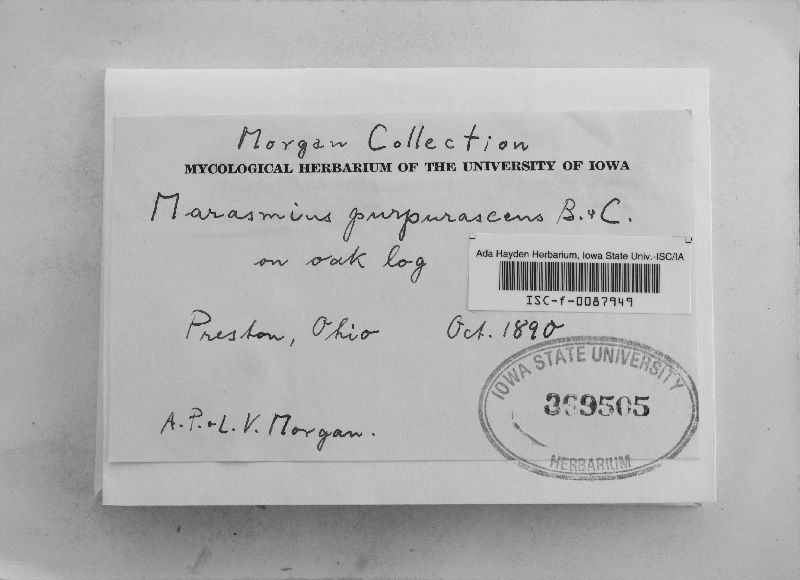 Morgan Collection
MYCOLOGICAL HERBARIUM OF THE UNIVERSITY OF IOWA
Marasmius purpurascens B. & C.
on oak log
Ada Hayden Herbarium, Iowa State Univ.-ISC/IA
ISC-f-0087949
Preston, Ohio Oct. 1890
IOWA STATE UNIVERSITY
369505
HERBARIUM
A.P. & L.V. Morgan.